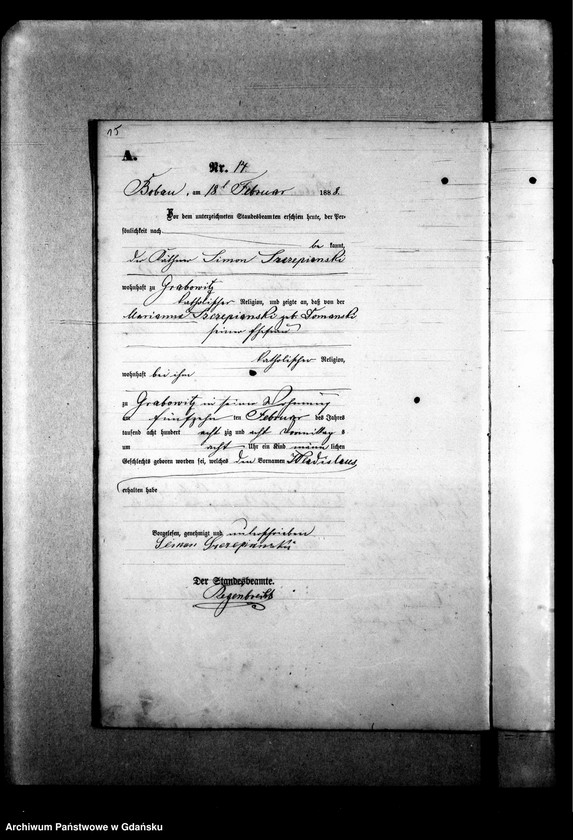 15
A.
Nr. 14.
Bobau, am 18t Februar 1888.
Vor dem unterzeichneten Standesbeamten erschien heute, der Per-
sönlichkeit nach
be kannt,
der Käthner Simon Szczepianski
wohnhaft zu Grabowitz
katholischer Religion, und zeigte an, daß von der
Marianna Szczepianski geb Domanski
seiner Ehefrau
katholischer Religion,
wohnhaft bei ihm
zu Grabowitz in seiner Wohnung
am fünfzehn ten Februar des Jahres
tausend acht hundert acht zig und acht Vormittag s
um acht Uhr ein Kind männ lichen
Geschlechts geboren worden sei, welches den Vornamen Wladislaus
erhalten habe
Vorgelesen, genehmigt und unterschrieben
Simon Szczepanski
Der Standesbeamte.
Regenbrecht
Archiwum Państwowe w Gdańsku